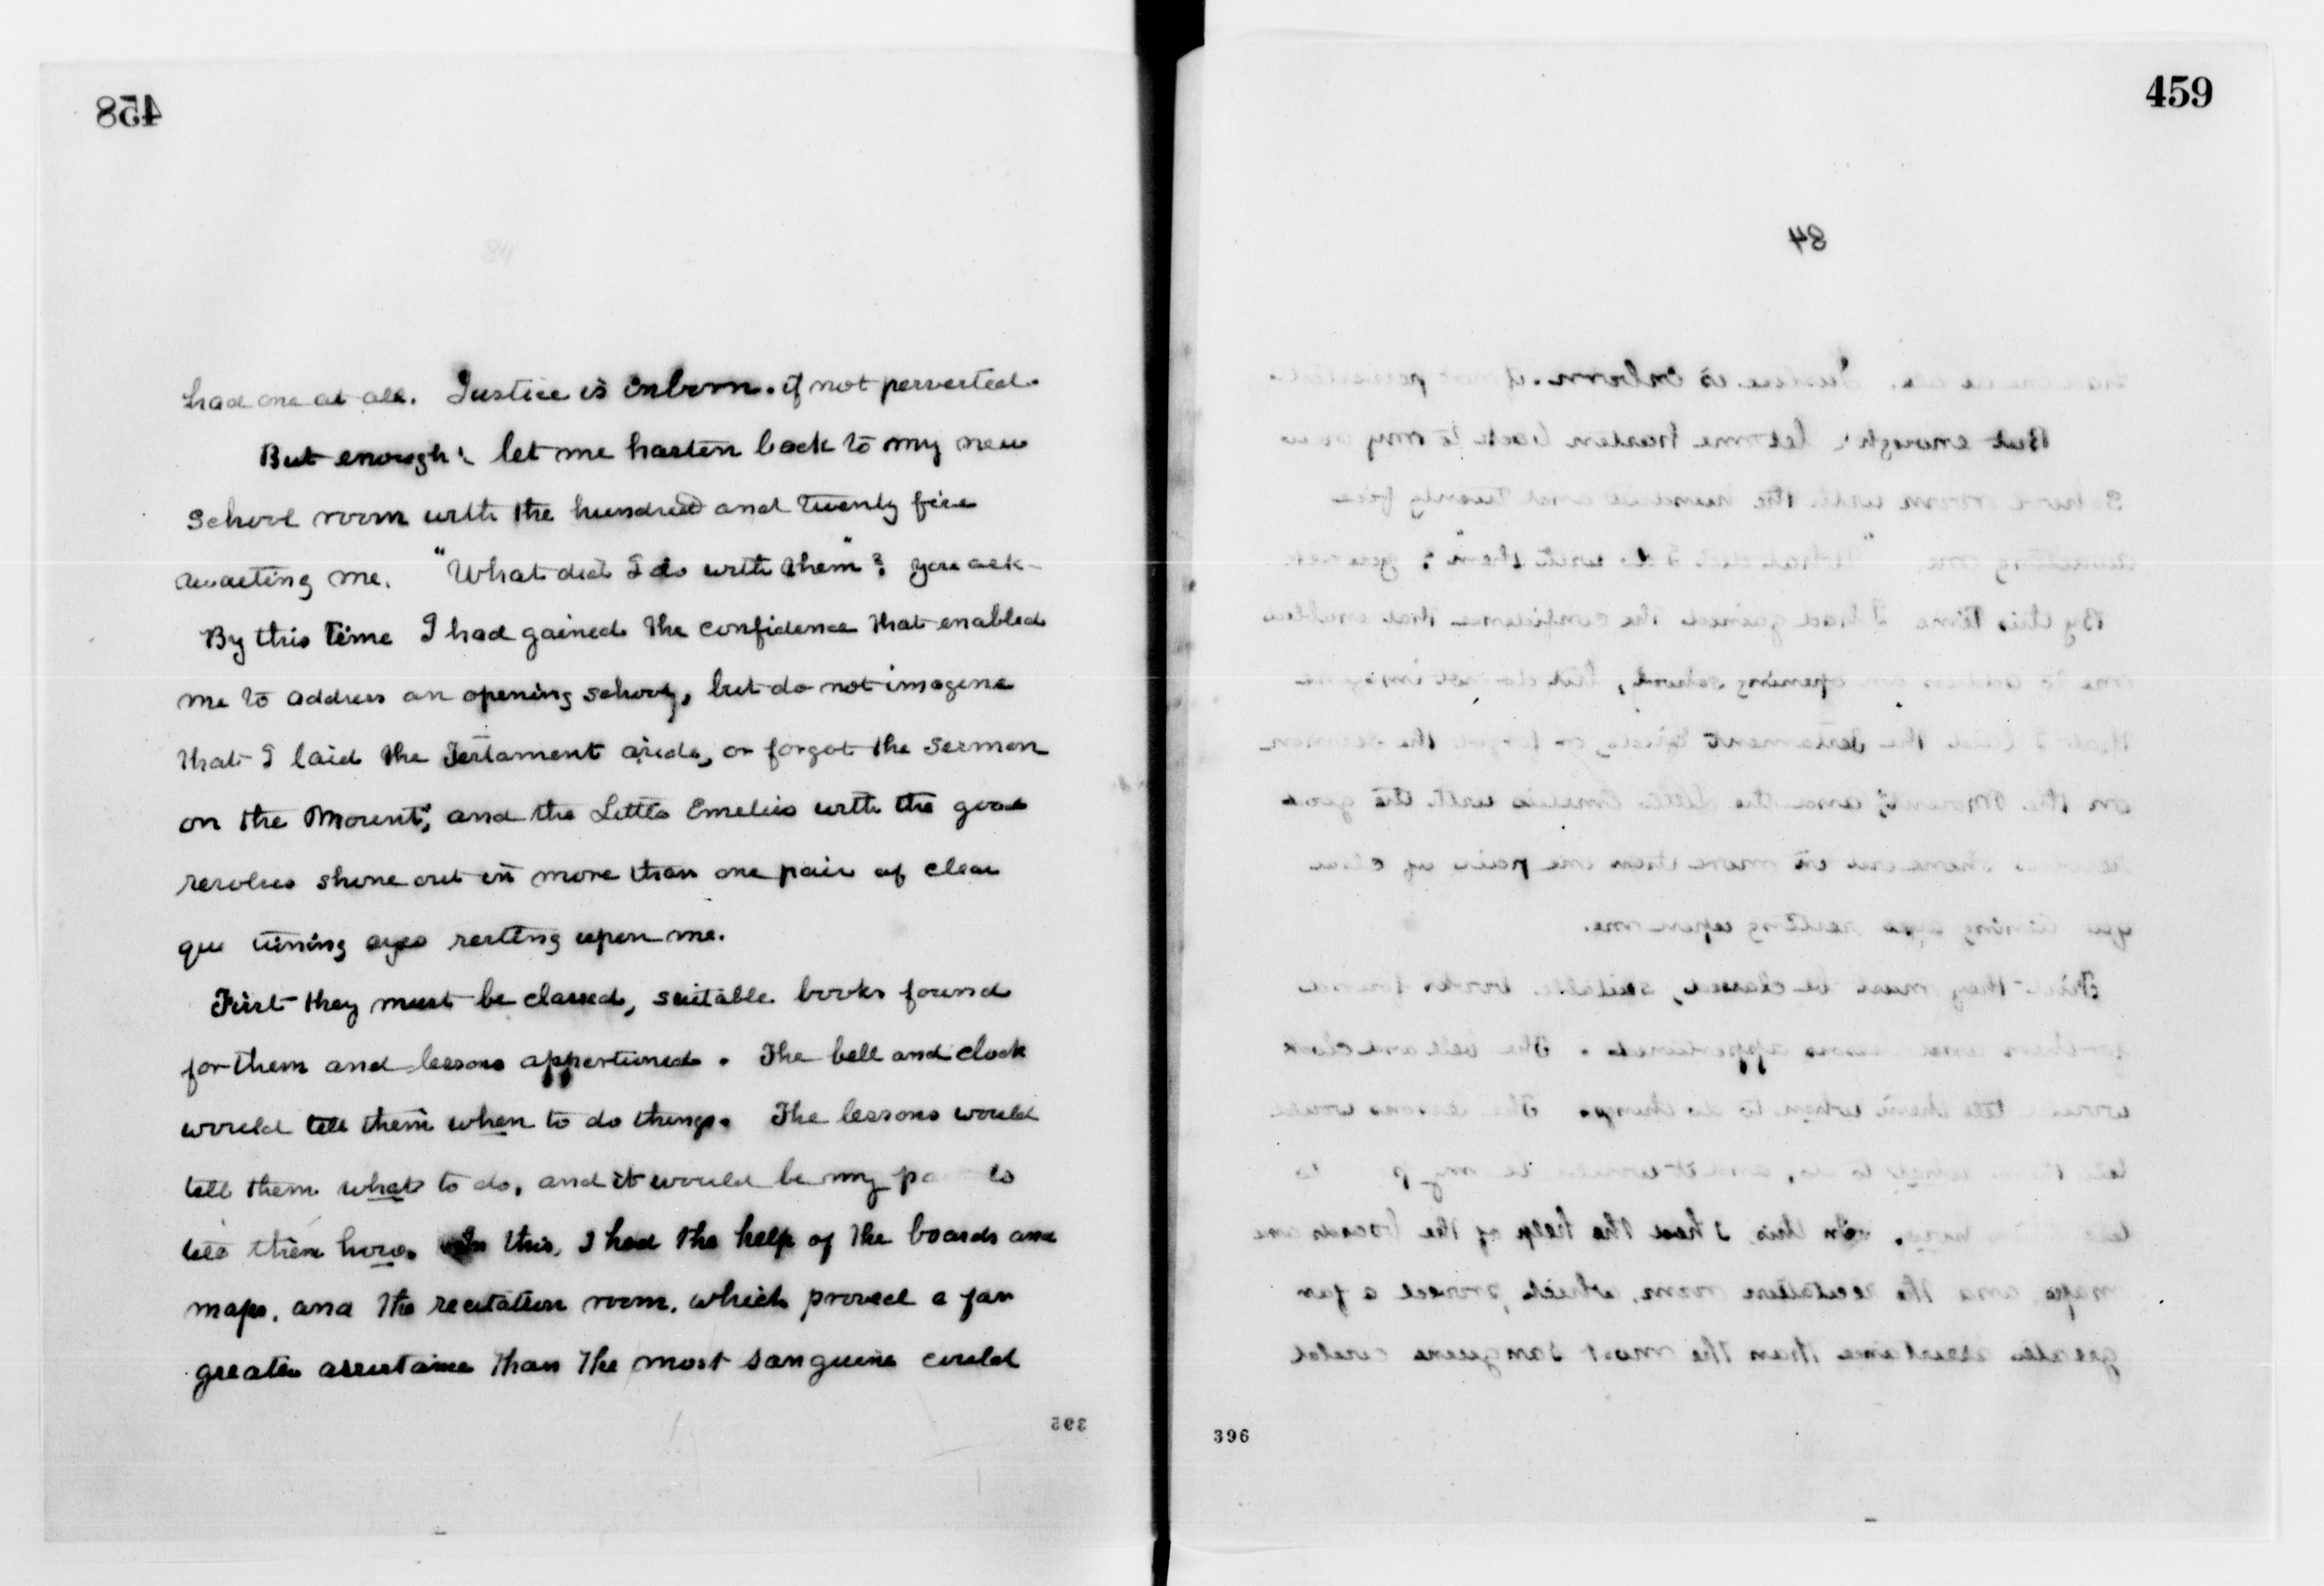 458
had one at all. Justice is inborn. if not perverted.
But enough! let me hasten back to my new
school room with the hundred and twenty five
awaiting me. "What did I do with them"? you ask-
By this time I had gained the confidence that enabled
me to address an opening school, but do not imagine
that I laid the Testament aside, or forgot the Sermon
on the Mount; and the Little Emelies with the good
resolves shone out in more than one pair of clear
questioning eyes resting upon me.
First they must be classed, suitable books found
for them and lessons apportioned. The bell and clock
would tell them when to do things. The lessons would
tell them what to do, and it would be my to
tell them how. In this, I had the help of the boards and
maps, and the recitation room, which proved a far
greater assistance than the most sanguine could
395
459
84
396